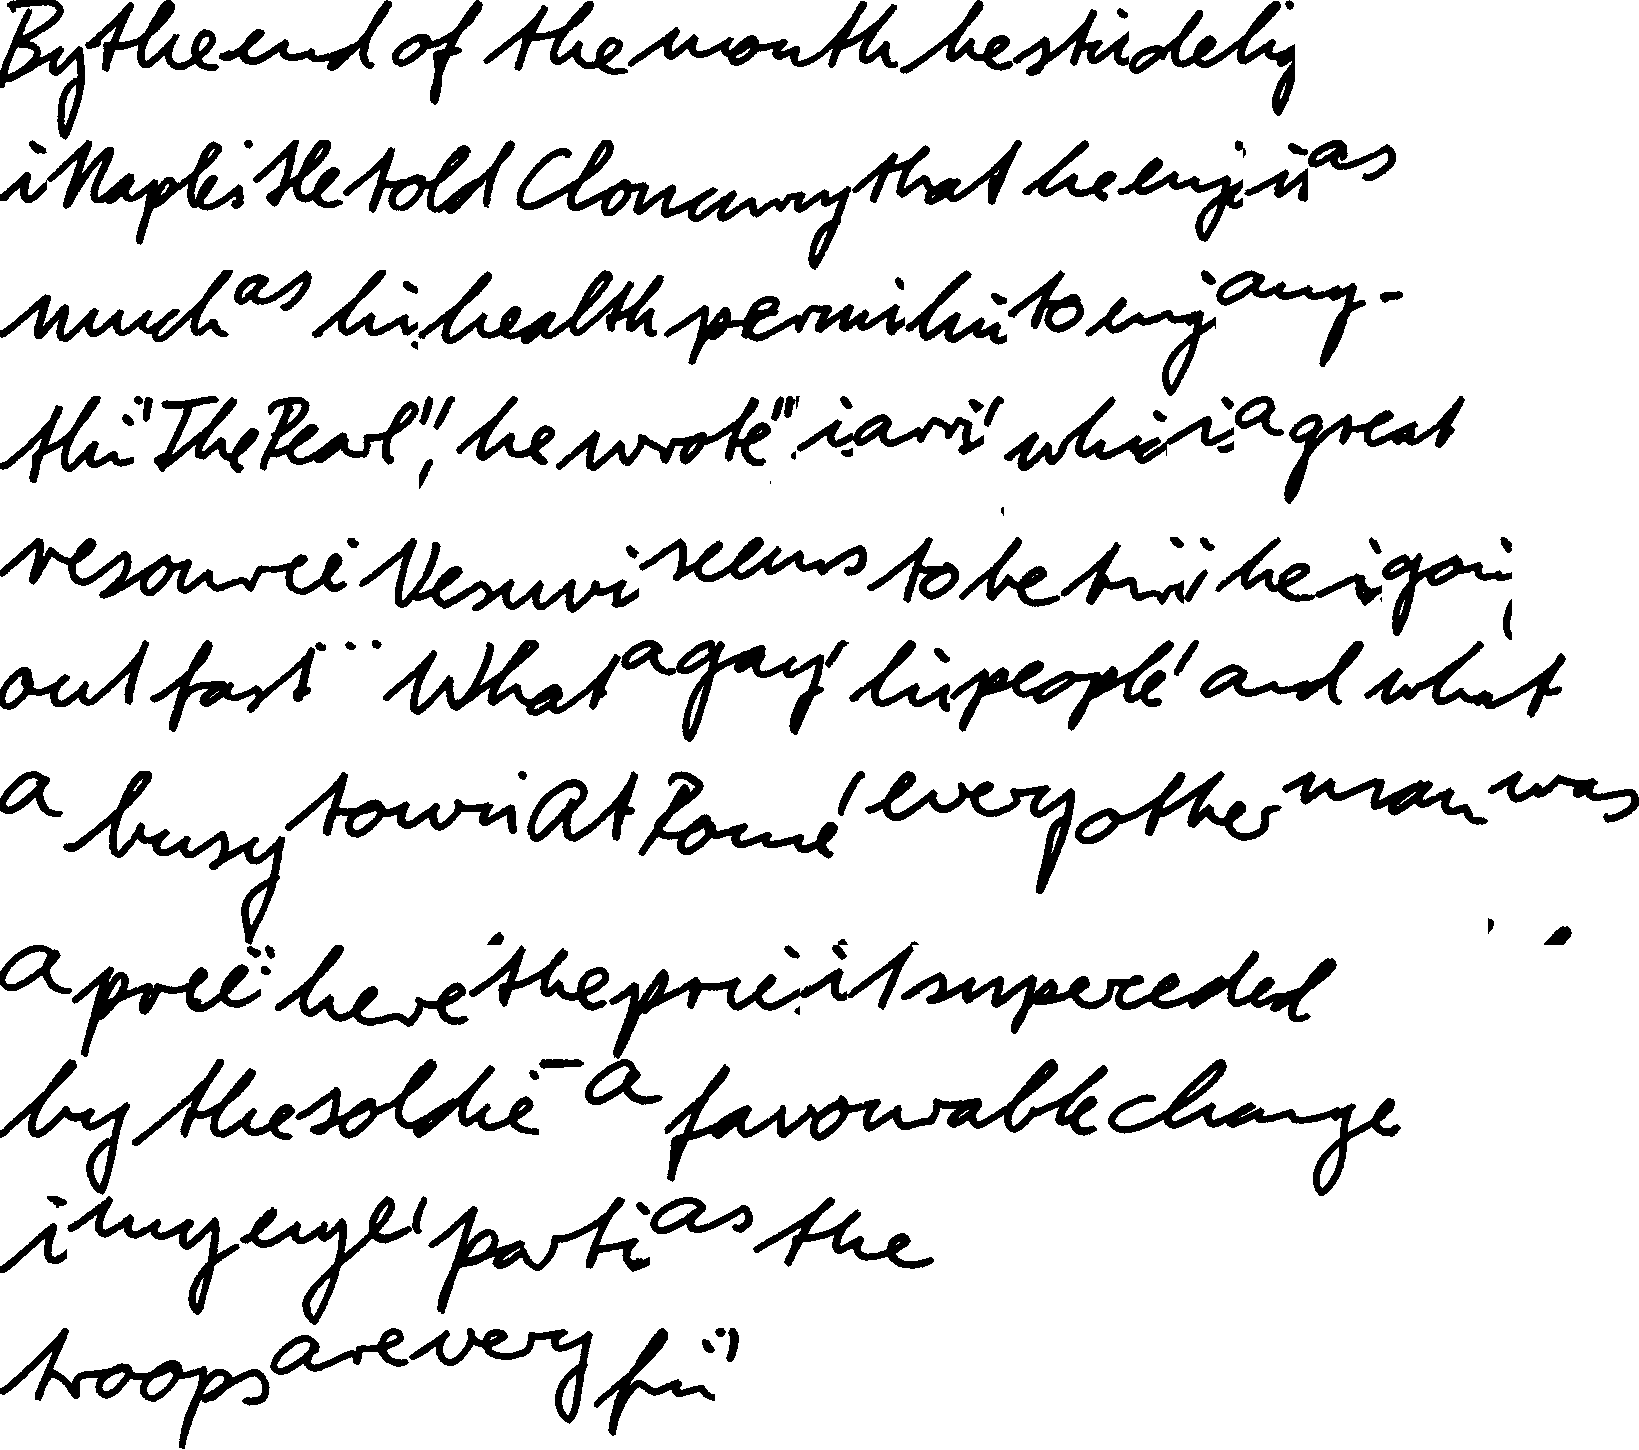 By the end of the month he is studelig
in Naples. He told Cloncurry that he enjoys it as
much as his health permits him to enjoy any-
thing. "The Pearl", he wrote, "is arrived, which is a great
resource. Vesuvius seems to be tired; he is going
out fast... What a gay, lively people, and what
a busy town. At Rome, every other man was
a priest; here the priest is superceded
by the soldier - a favourable change
in my eyes, particularly as the
troops are very fine."